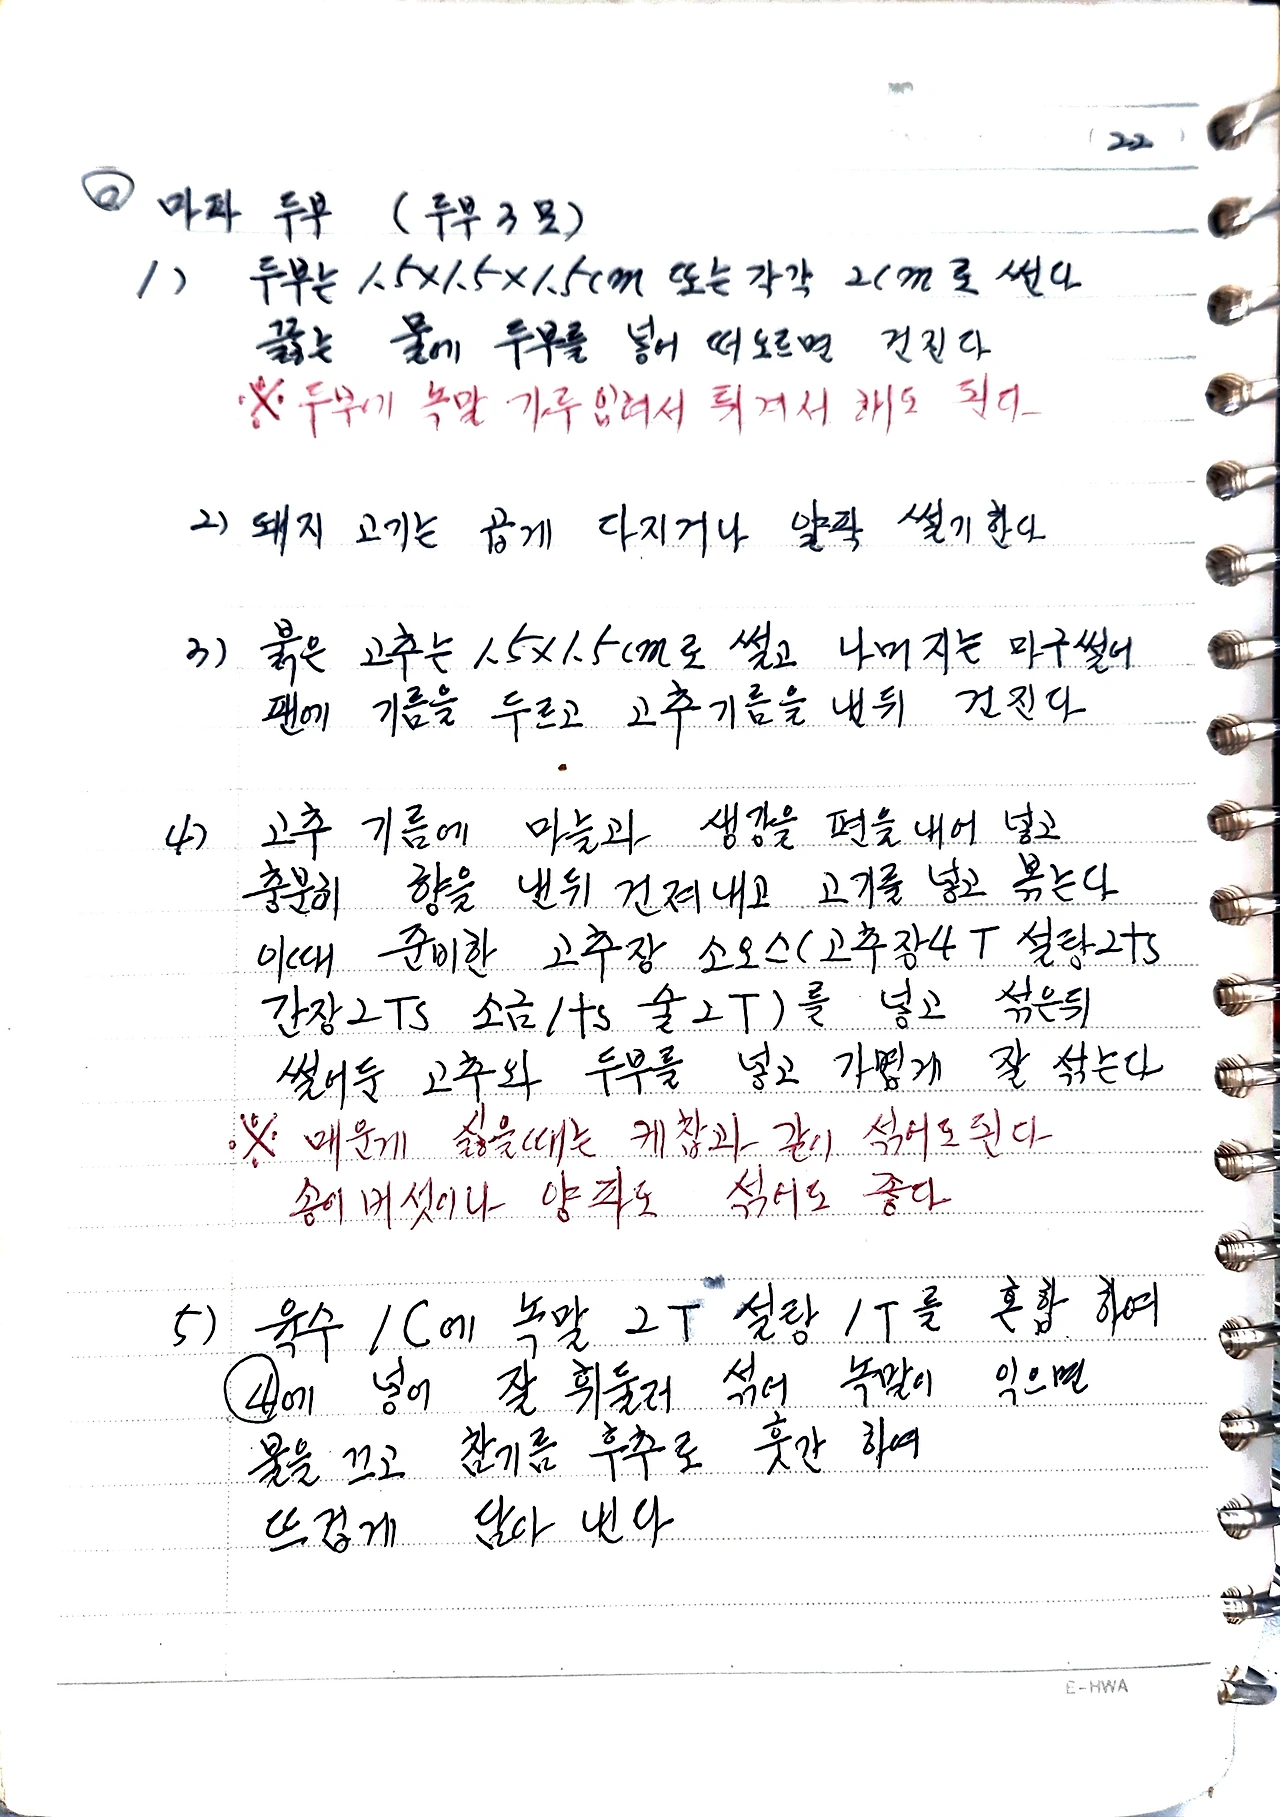 (22)
마파 두부 (두부 3 모)
1) 두부는 1.5×1.5×1.5cm 또는 각각 2cm로 썬다
끓는 물에 두부를 넣어 떠오르면 건진다
※ 두부에 녹말 가루 입혀서 튀겨서 해도 된다
2) 돼지 고기는 곱게 다지거나 얄팍 썰기한다
3) 붉은 고추는 1.5×1.5cm로 썰고 나머지는 마구썰어
팬에 기름을 두르고 고추기름을 낸뒤 건진다
4) 고추 기름에 마늘과 생강을 편을 내어 넣고
충분히 향을 낸뒤 건져내고 고기를 넣고 볶는다
이때 준비한 고추장 소오스(고추장4T 설탕2ts
간장2TS 소금1ts 술2T)를 넣고 섞은뒤
썰어둔 고추와 두부를 넣고 가볍게 잘 섞는다
※ 매운게 싫을때는 케찹과 같이 섞어도된다
송이버섯이나 양파도 섞어도 좋다
5) 육수 1C에 녹말 2T 설탕 1T를 혼합 하여
④에 넣어 잘 휘둘러 섞어 녹말이 익으면
불을 끄고 참기름 후추로 훗간 하여
뜨겁게 담아 낸다
E-HWA